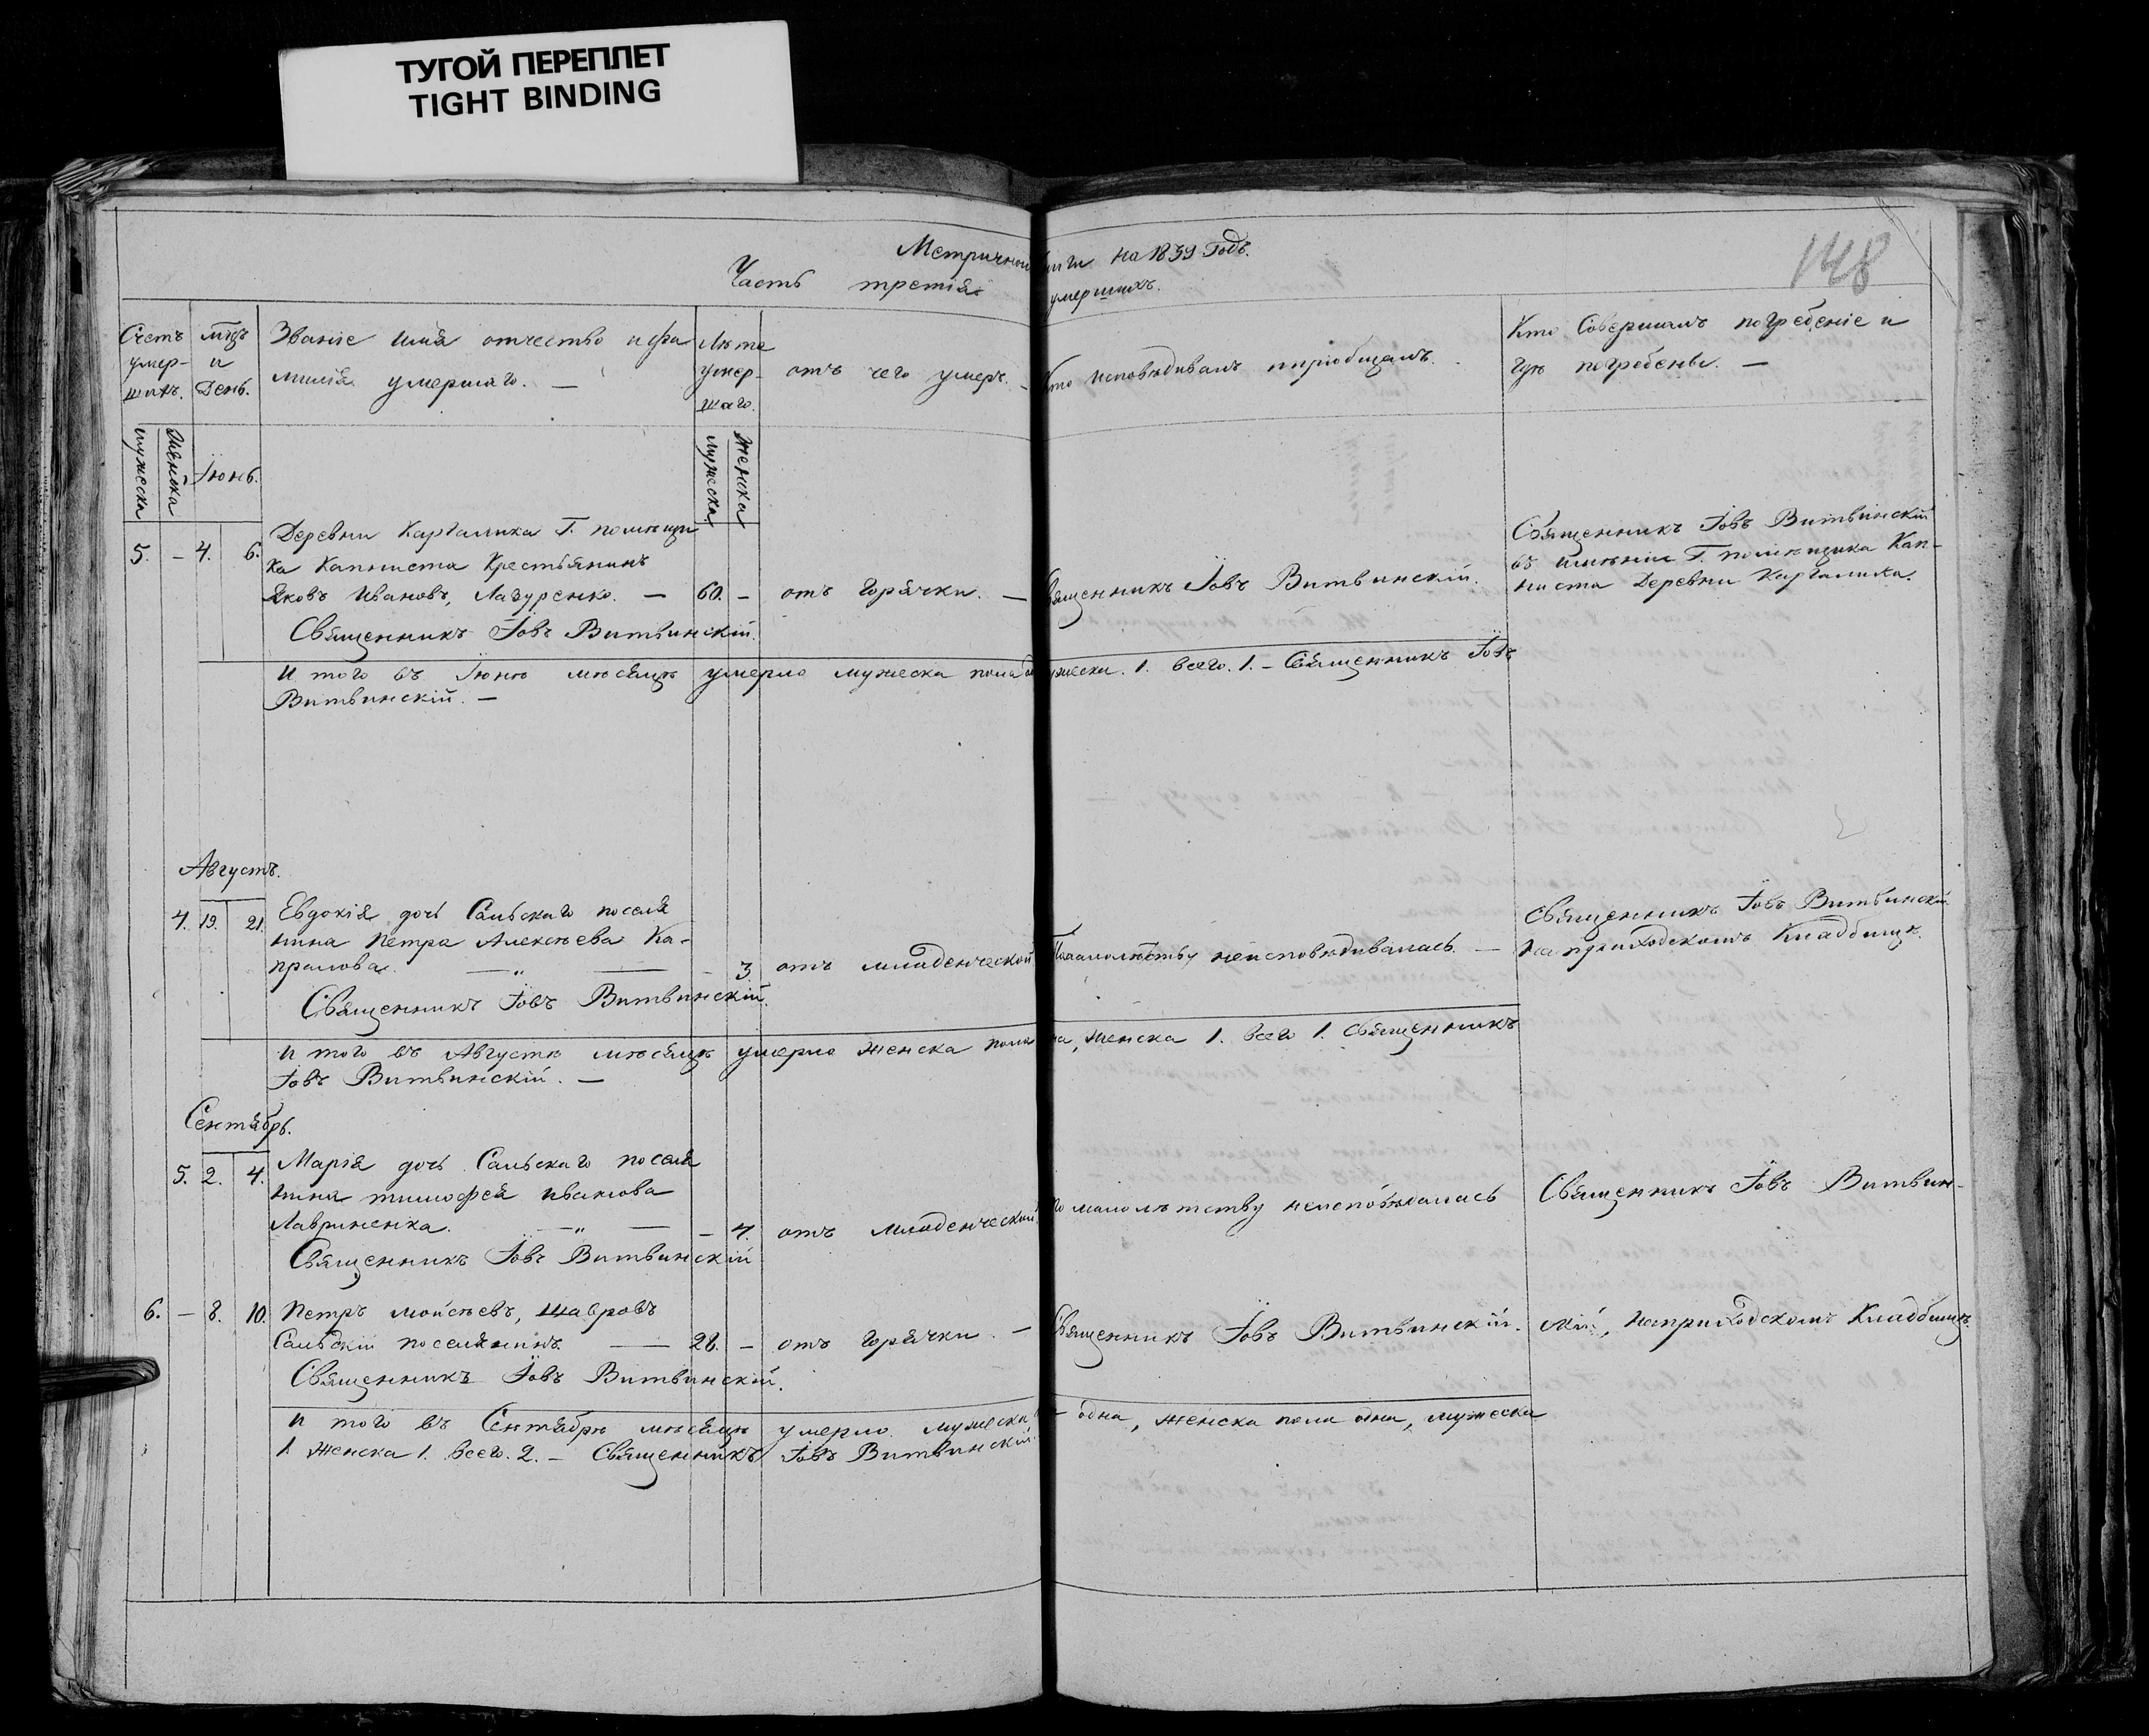 ТУГОЙ ПЕРЕПЛЕТ
TIGHT BINDING
148
Метричной книги на 1839 Годъ.
Часть третія умершихъ.
Счетъ умер-шихъ.
мцъ и День.
Званіе имя отчество и фа
милія умершаго. —
Лѣта умер-шаго.
отъ чего умеръ. —
Кто исповѣдивалъ и пріобщалъ.
Кто Совершалъ погребеніе и
гдѣ погребены. —
мужеска
женска
Іюнь.
мужеска
женска
5. — 4. 6.
Деревни Карталика Г. помѣщи
ка Капниста Крестьянинъ
Яковъ Ивановъ, Лазуренко. — 60. — отъ Горячки. — Священникъ Іовъ Витвинскій.
Священникъ Іовъ Витвинскій
въ имѣніи Г. помѣщика Кап-
ниста Деревни Карталика.
Священникъ Іовъ Витвинскій.
И того въ Іюнѣ мѣсяцѣ умерло мужеска пола мужеска. 1. всего. 1. — Священникъ Іовъ
Витвинскій. —
Августъ.
4. 19. 21.
Евдокія дочь Сельскаго поселя
нина Петра Алексѣева Ка-
пралова. — „ — - 3. отъ младенческой По малолѣтству неисповѣдивалась. —
Священникъ Іовъ Витвинскій
На приходскомъ Кладбищѣ.
Священникъ Іовъ Витвинскій.
И того въ Августѣ мѣсяцѣ умерло женска пола женска 1. всего 1. Священникъ
Іовъ Витвинскій. —
Сентябрь.
5. 2. 4.
Марія дочь Сельскаго поселя
нина тимофея иванова
Лавриненка. — „ — - 4. отъ Младенческой По малолѣтству неисповѣдалась
Священникъ Іовъ Витвин-
Священникъ Іовъ Витвинскій
6. — 8. 10.
Петръ мойсѣевъ, Шавровъ
Сельскій поселянинъ — 28. — отъ Горячки. — Священникъ Іовъ Витвинскій.
скій, на приходскомъ Кладбищѣ.
Священникъ Іовъ Витвинскій.
И того въ Сентябрѣ мѣсяцѣ умерло мужеска — одна, женска пола одна, мужеска
1. женска 1. всего. 2. — Священникъ Іовъ Витвинскій.